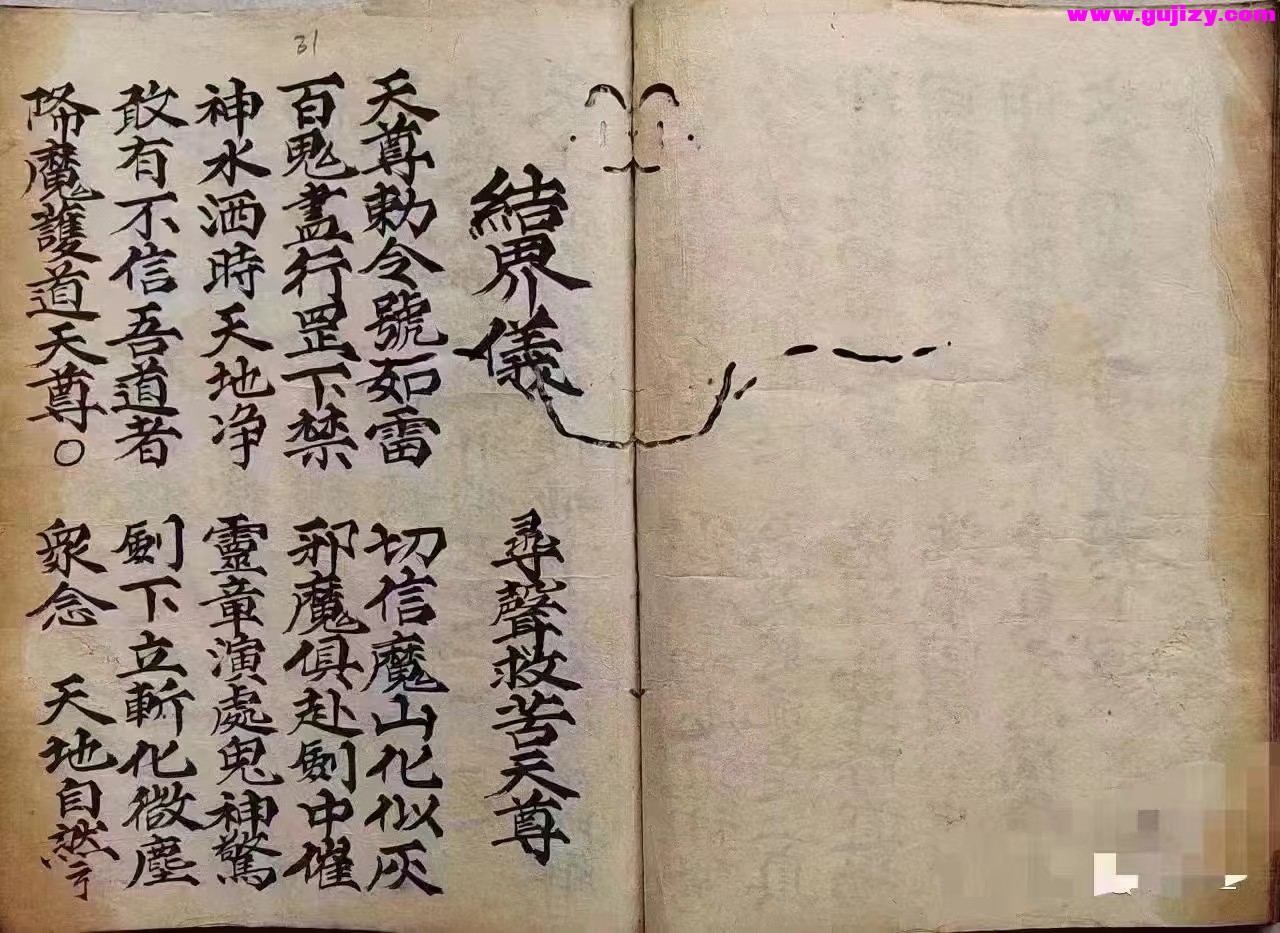 www.gujizy.com
31
結界儀 尋聲救苦天尊
天尊勅令號如雷 切信魔山化似灰
百鬼盡行罡下禁 邪魔俱赴劍中催
神水洒時天地净 靈章演處鬼神驚
敢有不信吾道者 劍下立斬化微塵
降魔護道天尊○ 衆念 天地自然云